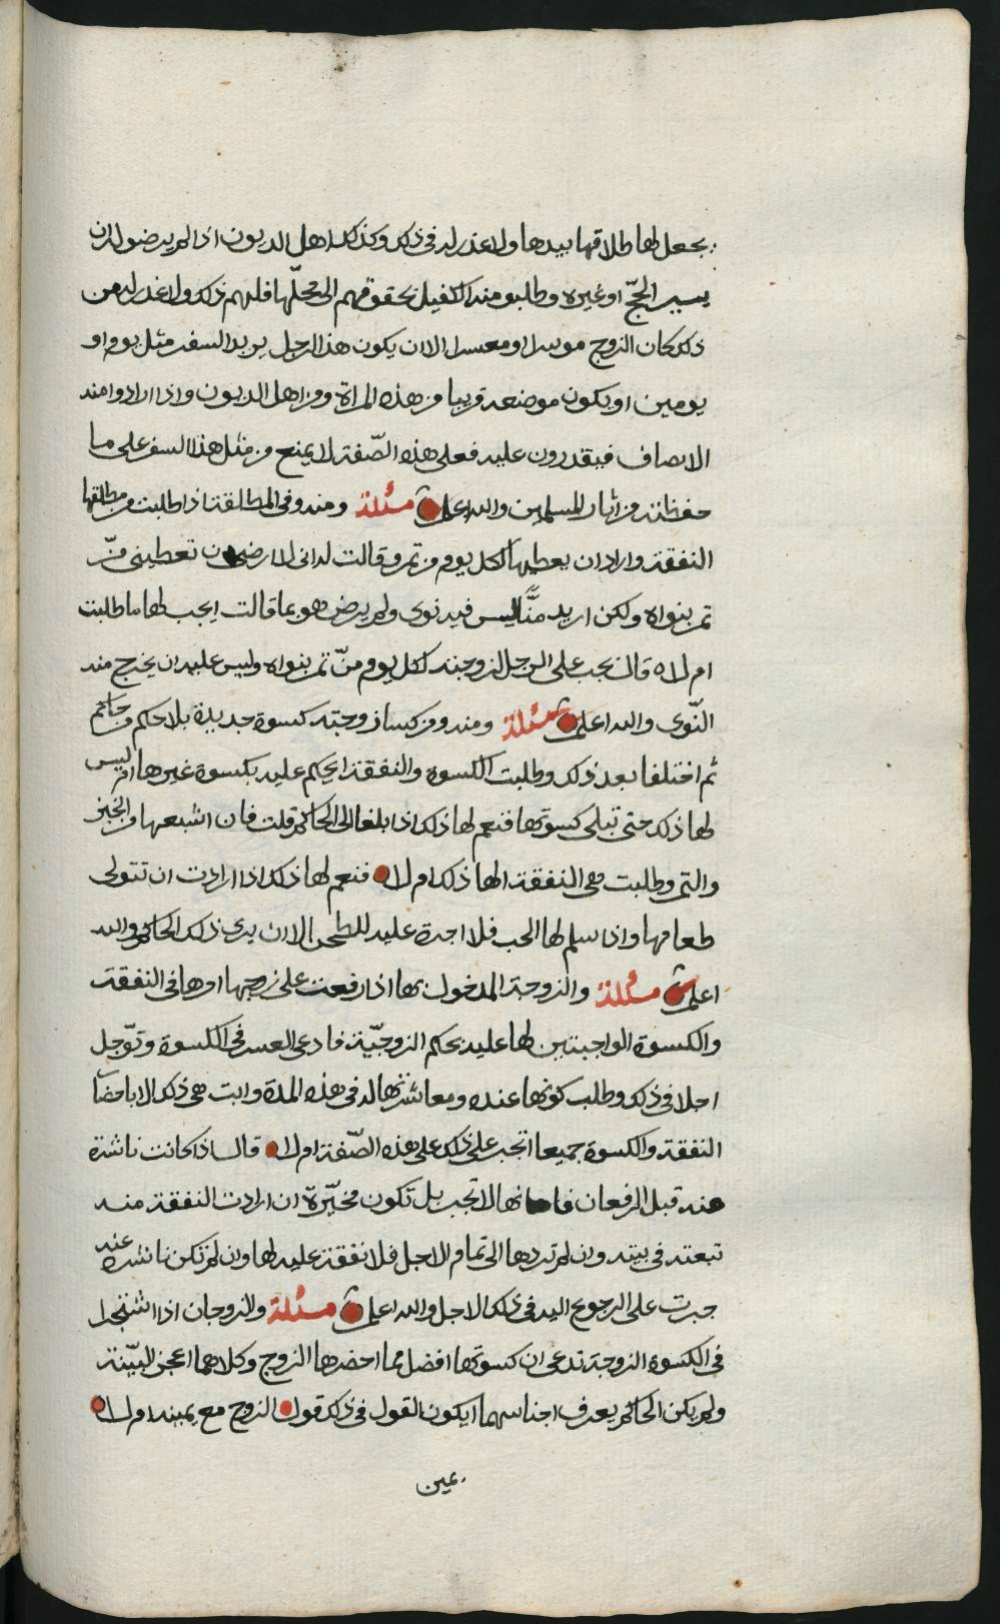 يجعل لها طلاقها بيدها ولا عذر له في ذلك وكذلك اهل الديون اذا لم يرضوا له ان
يسير الحجّ او غيره وطلبو منه الكفيل بحقوقهم الى محلّها فلهم ذلك ولا عذر له من
ذلك كان الزوج موسرا او معسرا الا ان يكون هذا الرجل يريد السفر مثل يوم او
يومين او يكون موضعه قريبا من هذه المراة ومن اهل الديون واذا ارادوا منه
الانصاف فيقدرون عليه فعلى هذه الصّفة لا يمنع من مثل هذا السفر على ما
حفظته من اثار المسلمين والله اعلم مسئلة ومنه وفي المطلقة اذا طلبت من مطلقها
النفقة واراد ان يعطيها لكل يوم من تمر وقالت له اني لا ارضى ان تعطيني منّ
تمر بنواه ولكن اريد منًّا ليس فيه نوى ولم يرض هو بما قالت ايجب لها ما طلبت
ام لا قال يجب على الرجل لزوجته لكل يوم منّ تمر بنواه وليس عليه ان يخرج منه
النّوى والله اعلم مسئلة ومنه ومن كسا زوجته كسوة جديدة بلا حكم من حاكم
ثم اختلفا بعد ذلك وطلبت الكسوة والنفقة ايحكم عليه بكسوة غيرها ام ليس
لها ذلك حتى تبلى كسوتها فنعم لها ذلك اذا بلغا الى الحاكم قلت فان اشبعها من الخبز
والتمر وطلبت هي النفقة الها ذلك ام لا فنعم لها ذلك اذا ارادت ان تتولى
طعامها واذا سلم لها الحب فلا اجرة عليه للطحن الا ان يرى ذلك الحاكم والله
اعلم مسئلة والزوجة المدخول بها اذا رفعت على زوجها امرها في النفقة
والكسوة الواجبتين لها عليه بحكم الزوجيّة فادعى العسر في الكسوة وتؤجل
اجلا في ذلك وطلب كونها عنده ومعاشرتها له في هذه المدة وابت هي ذلك الا باحضار
النفقة والكسوة جميعا اتجبر على ذلك على هذه الصّفة ام لا قال اذا كانت ناشزة
عنه قبل الرفعان فانها لا تجبر بل تكون مخيّرة ان ارادت النفقة منه
تبعته في بيته وان لم تردها الى تمام الاجل فلا نفقة عليه لها وان لم تكن ناشزه عنه
جبرت على الرجوع اليه في ذلك الاجل والله اعلم مسئلة والزوجان اذا اشتجرا
في الكسوة الزوجة تدعي ان كسوتها افضل مما احضرها الزوج وكلاهما اعجز البيّنة
ولم يكن الحاكم يعرف اجناسهما ايكون القول في ذلك قول الزوج مع يمينه ام لا
يمين